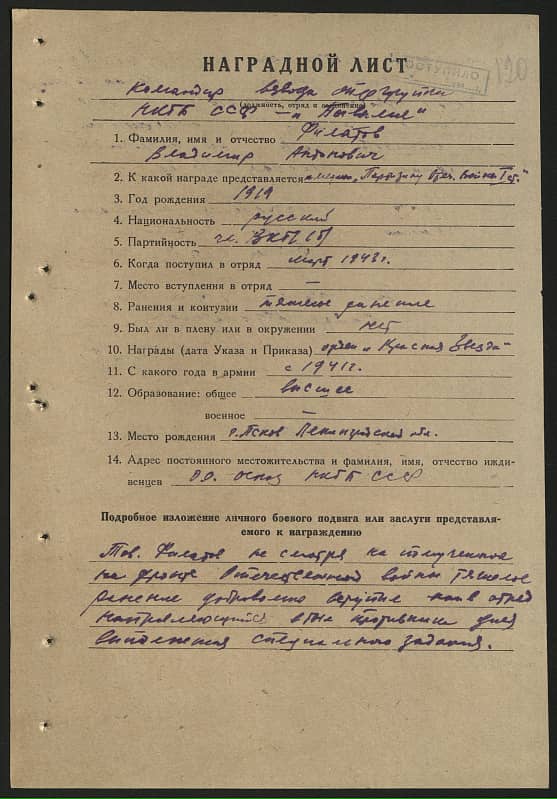 ПОСТУПИЛО
120
НАГРАДНОЙ ЛИСТ
Командир взвода опергруппы
(должность, отряд и соединение)
НКГБ СССР —
Филатов
1. Фамилия, имя и отчество
Владимир Антонович
2. К какой награде представляется медали „Партизану Отеч. Войны I ст."
3. Год рождения 1919
4. Национальность русский
5. Партийность чл. ВКП(б)
6. Когда поступил в отряд март 1943 г.
7. Место вступления в отряд —
8. Ранения и контузии тяжелое ранение
9. Был ли в плену или в окружении нет
10. Награды (дата Указа и Приказа) орден „Красная Звезда"
11. С какого года в армии с 1941 г.
12. Образование: общее высшее
военное —
13. Место рождения г. Псков Ленинградской обл.
14. Адрес постоянного местожительства и фамилия, имя, отчество ижди-
венцев НКГБ СССР
Подробное изложение личного боевого подвига или заслуги представля-
емого к награждению
Тов. Филатов не смотря на полученное
на фронте Отечественной войны тяжелое
ранение добровольно вступил в отряд
направляющийся в тыл противника для
выполнения специального задания.